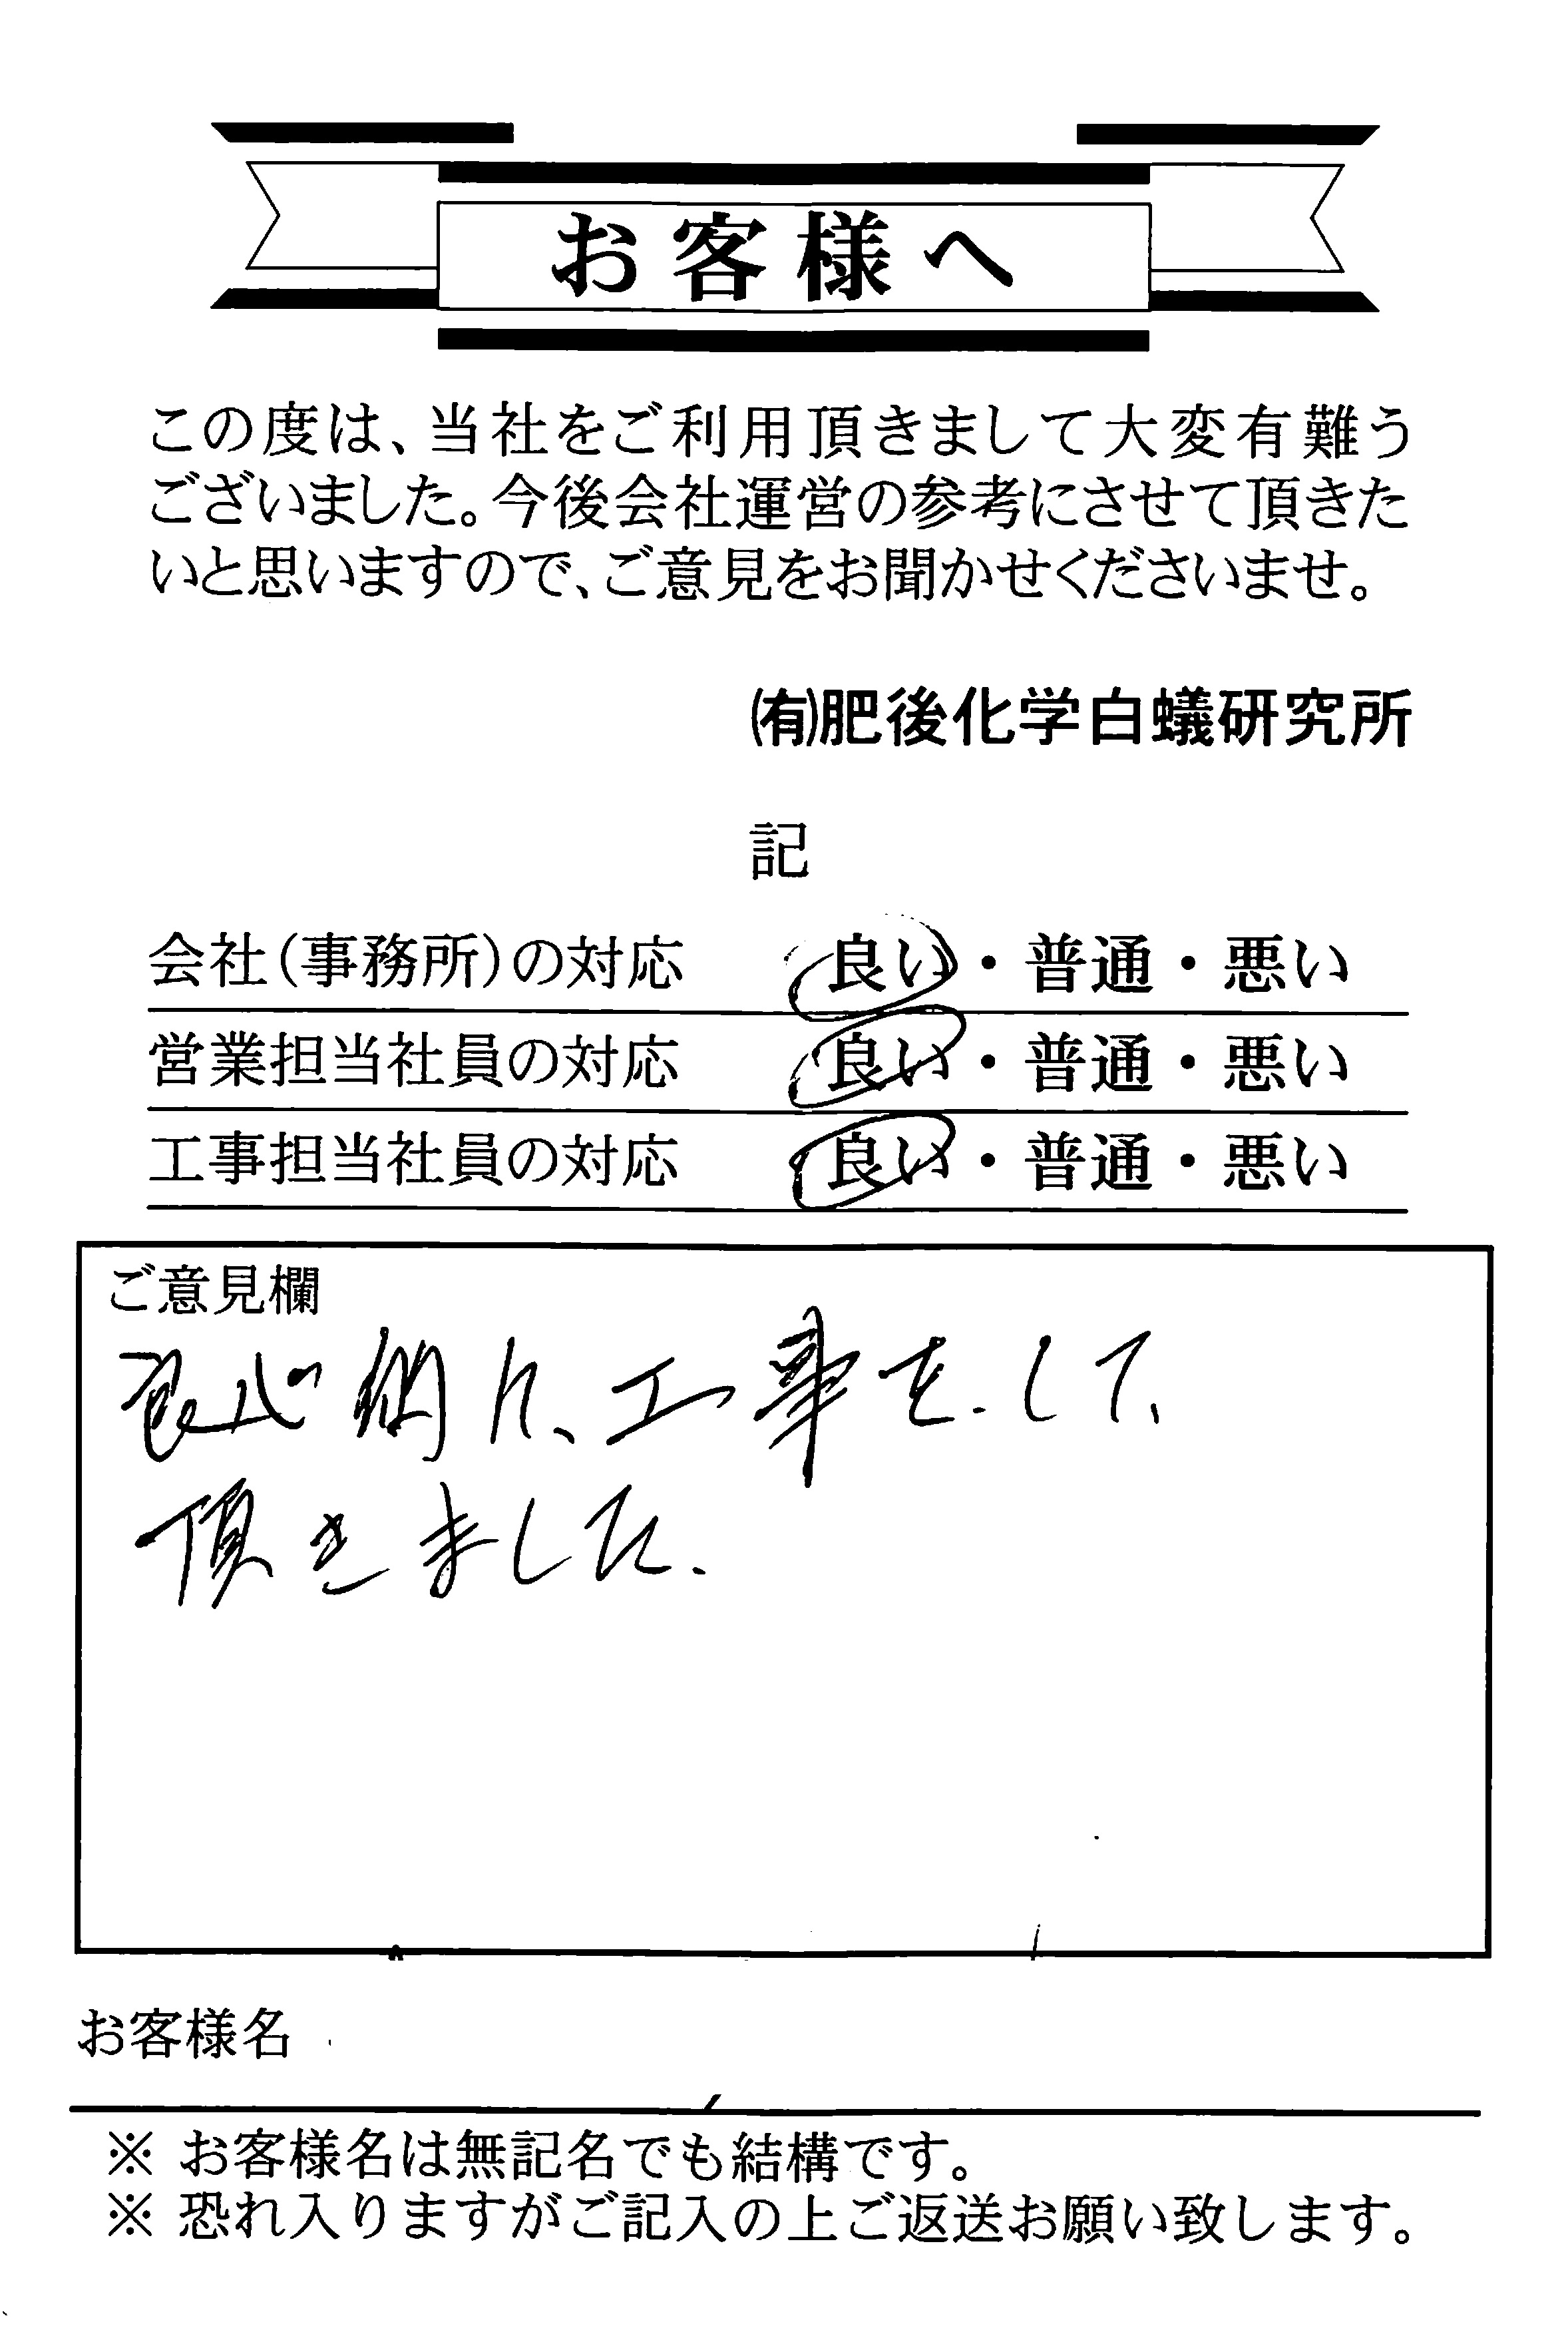 お客様へ
この度は、当社をご利用頂きまして大変有難う
ございました。今後会社運営の参考にさせて頂きた
いと思いますので、ご意見をお聞かせくださいませ。
㈲肥後化学白蟻研究所
記
会社(事務所)の対応 良い・普通・悪い
営業担当社員の対応 良い・普通・悪い
工事担当社員の対応 良い・普通・悪い
ご意見欄
良心的に、工事をして、
頂きました.
お客様名
※ お客様名は無記名でも結構です。
※ 恐れ入りますがご記入の上ご返送お願い致します。